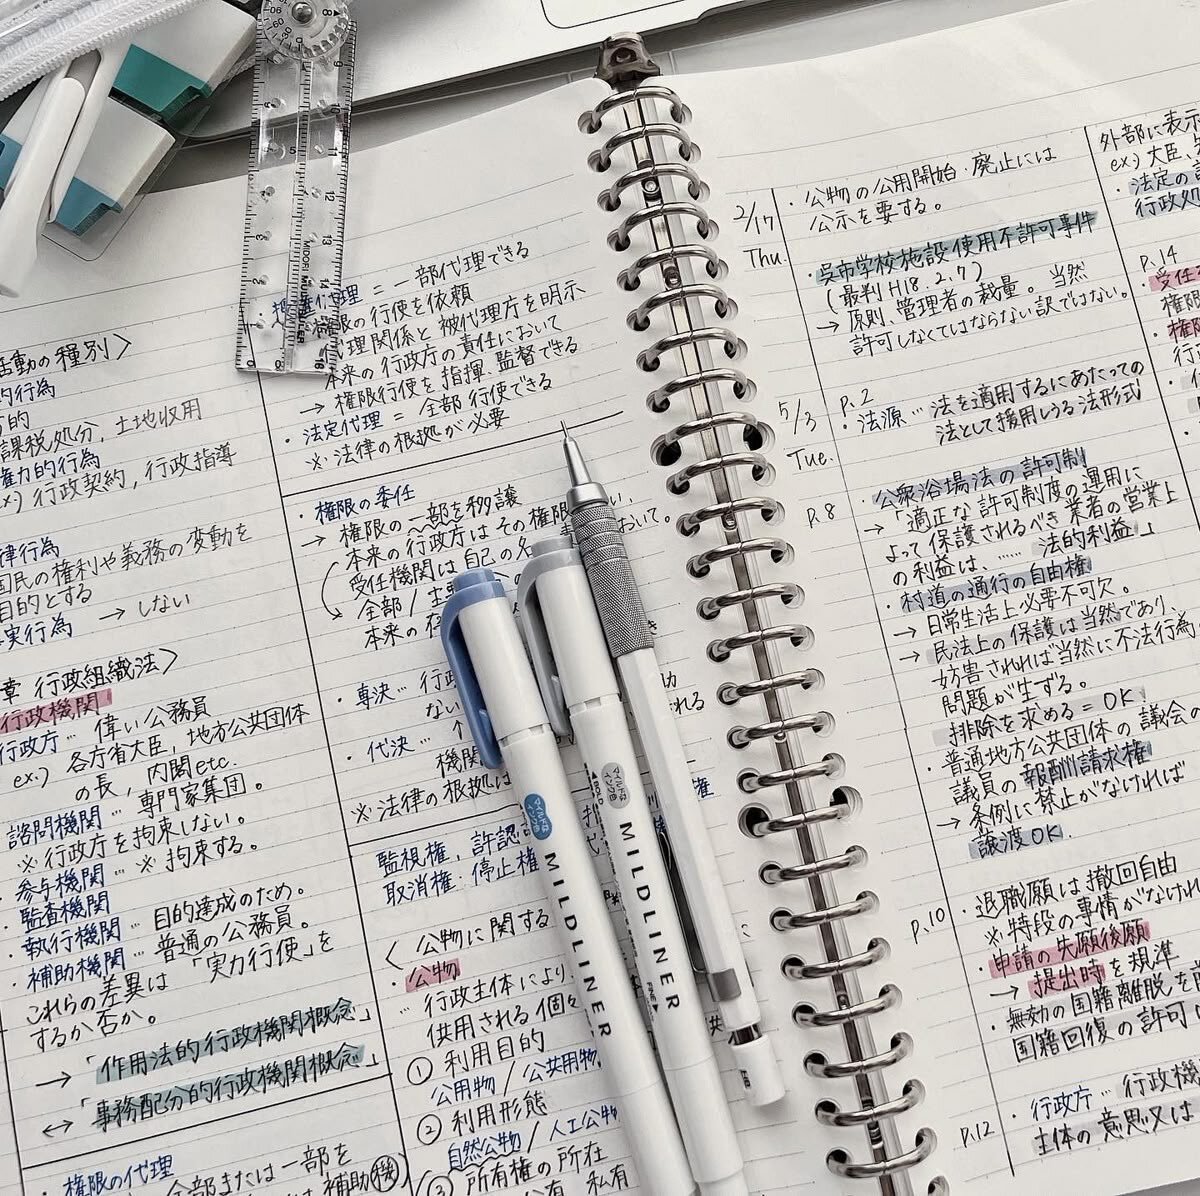 活動の種別〉
的行為
課税処分, 土地収用
権力的行為
ex) 行政契約, 行政指導
律行為
国民の権利や義務の変動を
目的とする
実行為 → しない
章 行政組織法〉
行政機関
行政庁… 偉い公務員
ex.) 各庁省大臣, 地方公共団体
の長, 内閣etc.
諮問機関… 専門家集団。
※行政庁を拘束しない。
・参与機関… ※拘束する。
・監査機関
・執行機関… 目的達成のため。
・補助機関… 普通の公務員。
これらの差異は「実力行使」を
するか否か。
→「作用法的行政機関概念」
↔「事務配分的行政機関概念」
・権限の代理
全部または一部を
補助機
代理 = 一部代理できる
限の行使を依頼
代理関係と被代理庁を明示
本来の行政庁の責任において
→ 権限行使を指揮 監督できる
・法定代理 = 全部行使できる
※法律の根拠が必要
・権限の委任
→ 権限の一部を移譲
本来の行政庁はその権限
受任機関は自己の名
において。
全部/主要
本来の
・専決… 行政
ない
・代決…
機関
※法律の根拠は
監視権, 許認
取消権・停止権
〈公物に関する
・公物
… 行政主体により,
供用される個々
① 利用目的
公用物/公共用物
② 利用形態
自然公物/人工公物
③ 所有権の所在
私有
MILDLINER
マイルドなインク色
MILDLINER
マイルドなインク色
BOLD
FINE
MIDORI
2/17
Thu.
・公物の公用開始・廃止には
公示を要する。
・呉市学校施設使用不許可事件
(最判H18.2.7)
→ 原則, 管理者の裁量。当然
許可しなくてはならない訳ではない。
5/3
Tue.
P.2
・法源… 法を適用するにあたっての
法として援用しうる法形式
P.8
・公衆浴場法の許可制
→「適正な許可制度の運用に
よって保護されるべき業者の営業上
の利益は, …… 法的利益」
・村道の通行の自由権
→ 日常生活上必要不可欠。
→ 民法上の保護は当然であり,
妨害されれば当然に不法行為
問題が生ずる。
排除を求める = OK
・普通地方公共団体の議会の
議員の報酬請求権
→ 条例に禁止がなければ
譲渡OK.
P.10
・退職願は撤回自由
※特段の事情がなければ
・申請の先願後願
→ 提出時を規準
・無効の国籍離脱を
国籍回復の許可
P.12
・行政庁… 行政機
主体の意思又は
外部に表示
ex) 大臣,
・法定の
行政処
P.14
・受任
権限
・権限
行